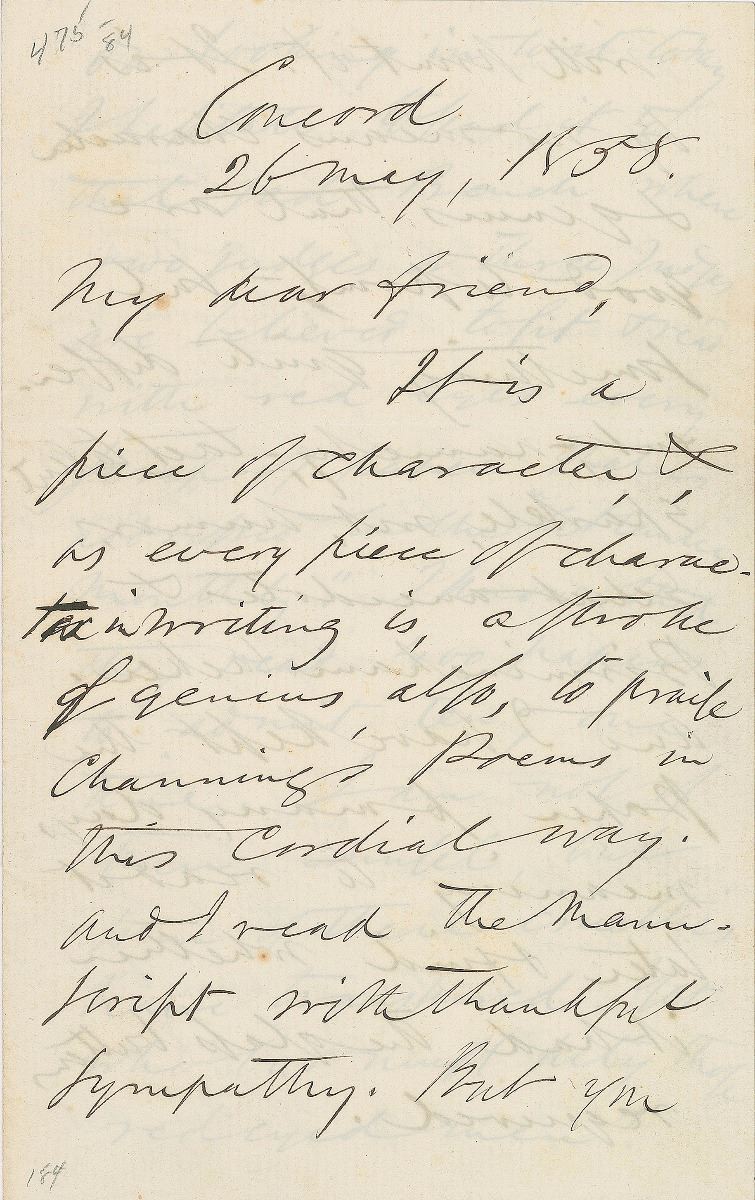 475
84
Concord
26 May, 1858.
My dear friend,
It is a
piece of character, &,
as every piece of charac-
ter in writing is, a stroke
of genius, also, to praise
Channing's Poems in
this cordial way.
and I read the manu-
script with thankful
sympathy. But you
184